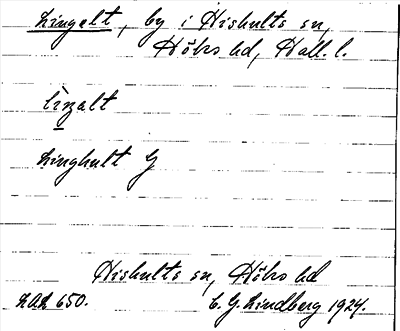 Lingalt, by i Hishults sn,
Höks hd, Hall. l.
liŋalt
Linghult G
Hishults sn, Höks hd
LAL 650. C. G. Lindberg 1924.